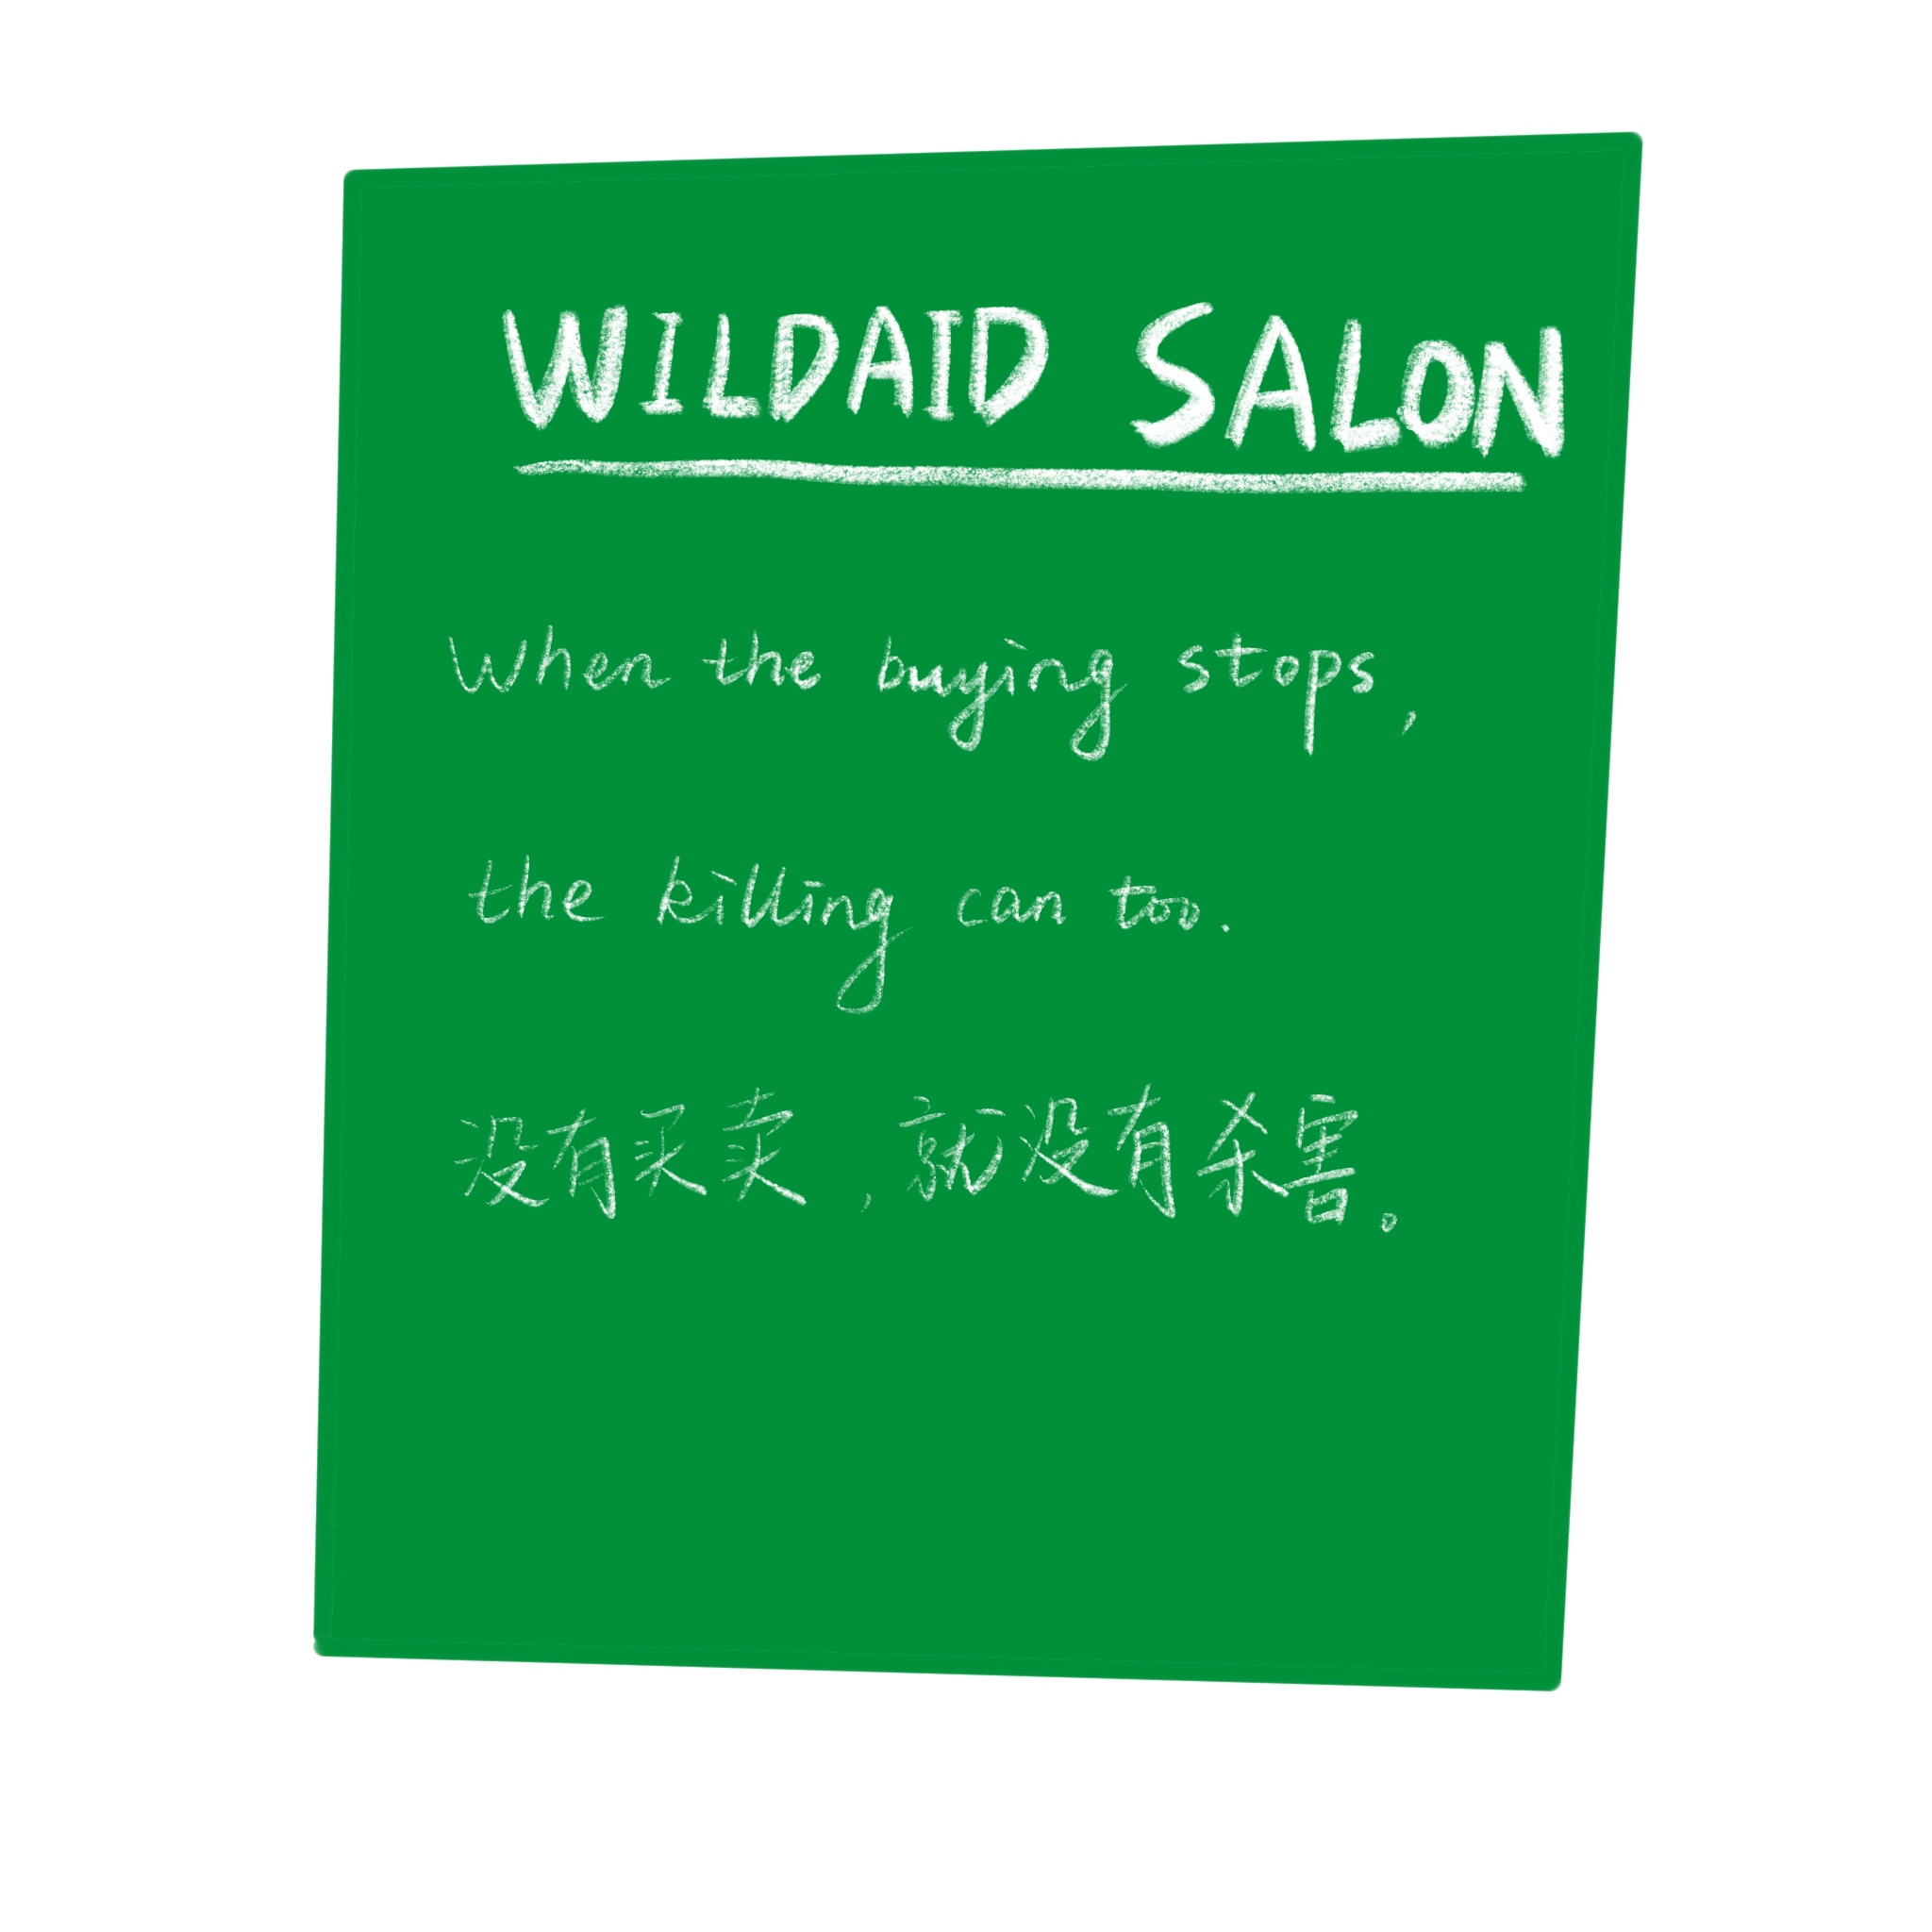 WILDAID SALON
When the buying stops,
the killing can too.
没有买卖，就没有杀害。